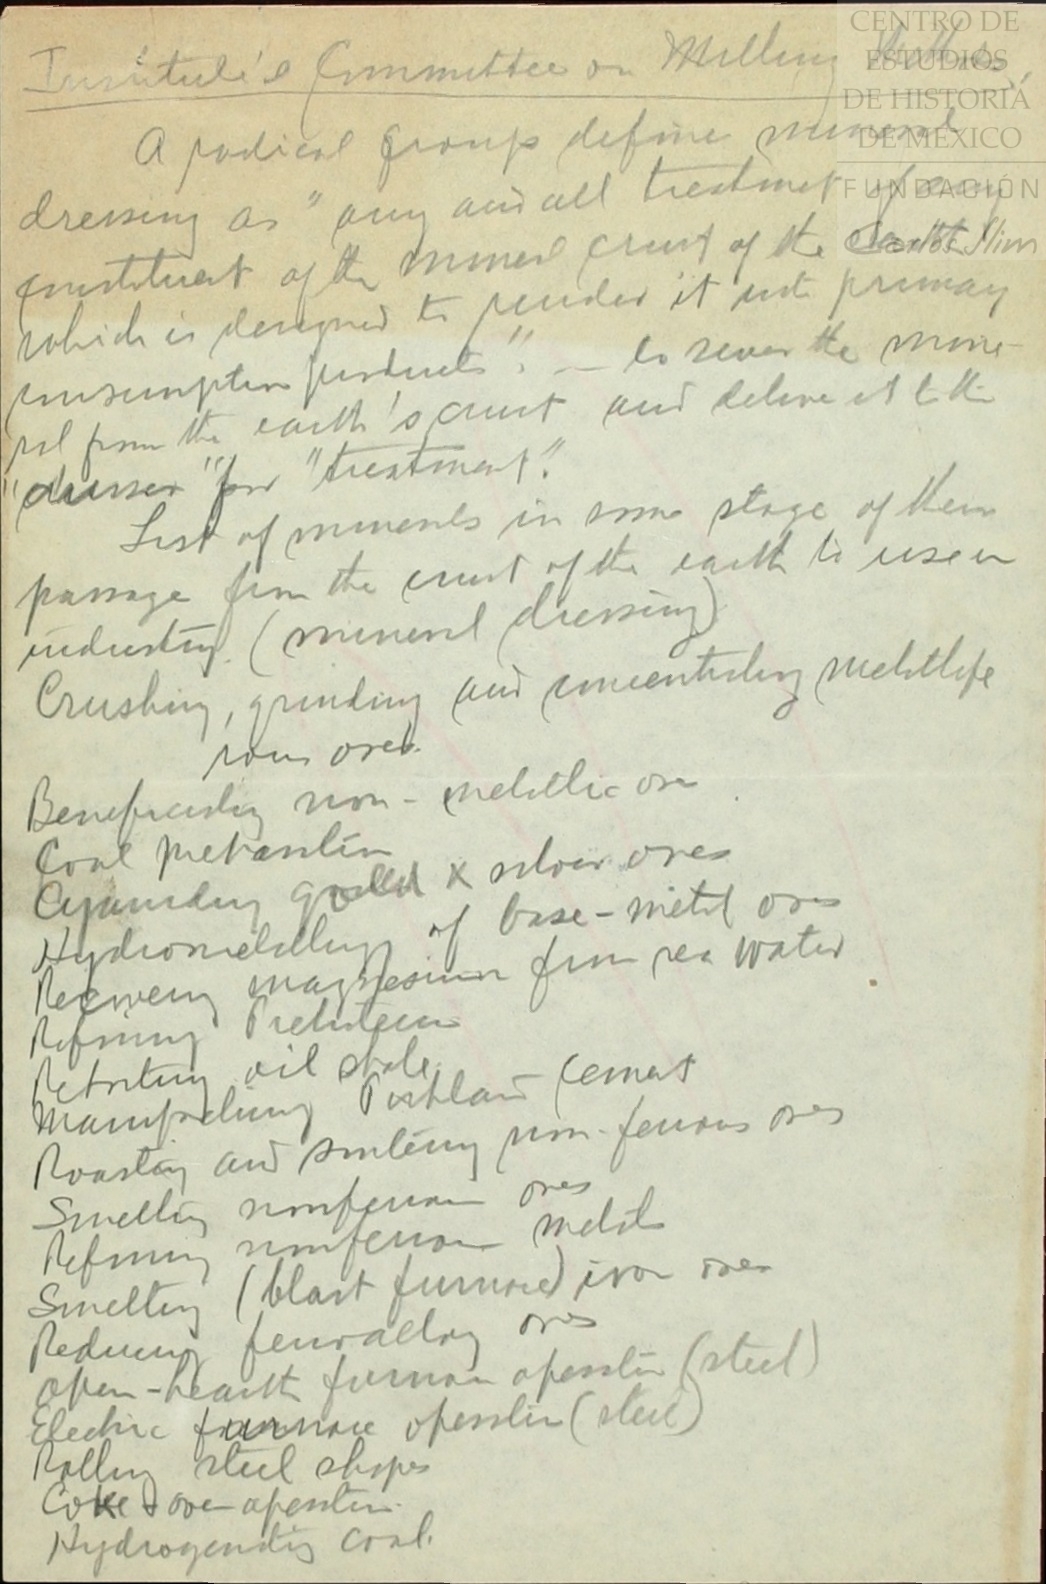 Institute's Committee on Milling
A radical group define mineral
dressing as "any and all treatment of any
constituent of the mineral crust of the earth
which is designed to render it into primary
consumption products". — to sever the mine-
ral from the earth's crust and deliver it to the
"dresser" for "treatment".
List of minerals in some stage of their
passage from the crust of the earth to use in
industry. (mineral dressing)
Crushing, grinding and concentrating metallife
rous ores.
Beneficiating non-metallic ore
Coal preparation
Cyaniding gold & silver ores
Hydrometallurgy of base-metal ores
Recovering magnesium from sea water
Refining Petroleum
Retorting oil shale
Manufacturing Portland Cement
Roasting and smelting non-ferrous ores
Smelting nonferrous ores
Refining nonferrous metals
Smelting (blast furnace) iron ores
Reducing ferroalloy ores
Open-hearth furnace operation (steel)
Electric furnace operation (steel)
Rolling steel shapes
Coke oven operation.
Hydrogenating coal.
CENTRO DE
ESTUDIOS
DE HISTORIA
DE MÉXICO
FUNDACIÓN
Carlos Slim